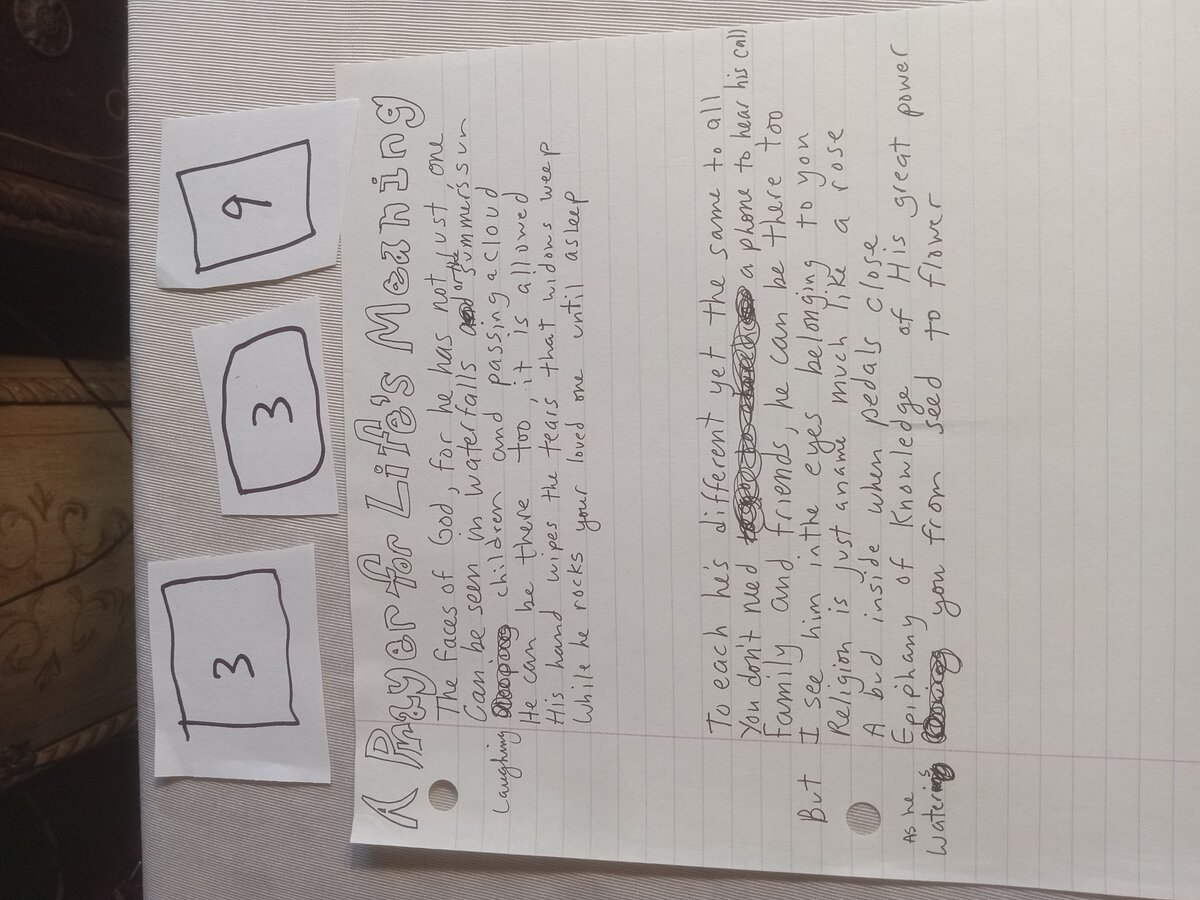 3
3
9
A Prayer for Life's Meaning
The faces of God, for he has not just one
Can be seen in waterfalls or the summer's sun
Laughing children and passing a cloud
He can be there too, it is allowed
His hand wipes the tears that widows weep
While he rocks your loved one until asleep
To each he's different yet the same to all
You don't need a phone to hear his call
Family and friends, he can be there too
But I see him in the eyes belonging to you
Religion is just a name much like a rose
A bud inside when pedals close
Epiphany of Knowledge of His great power
As he waters you from seed to flower